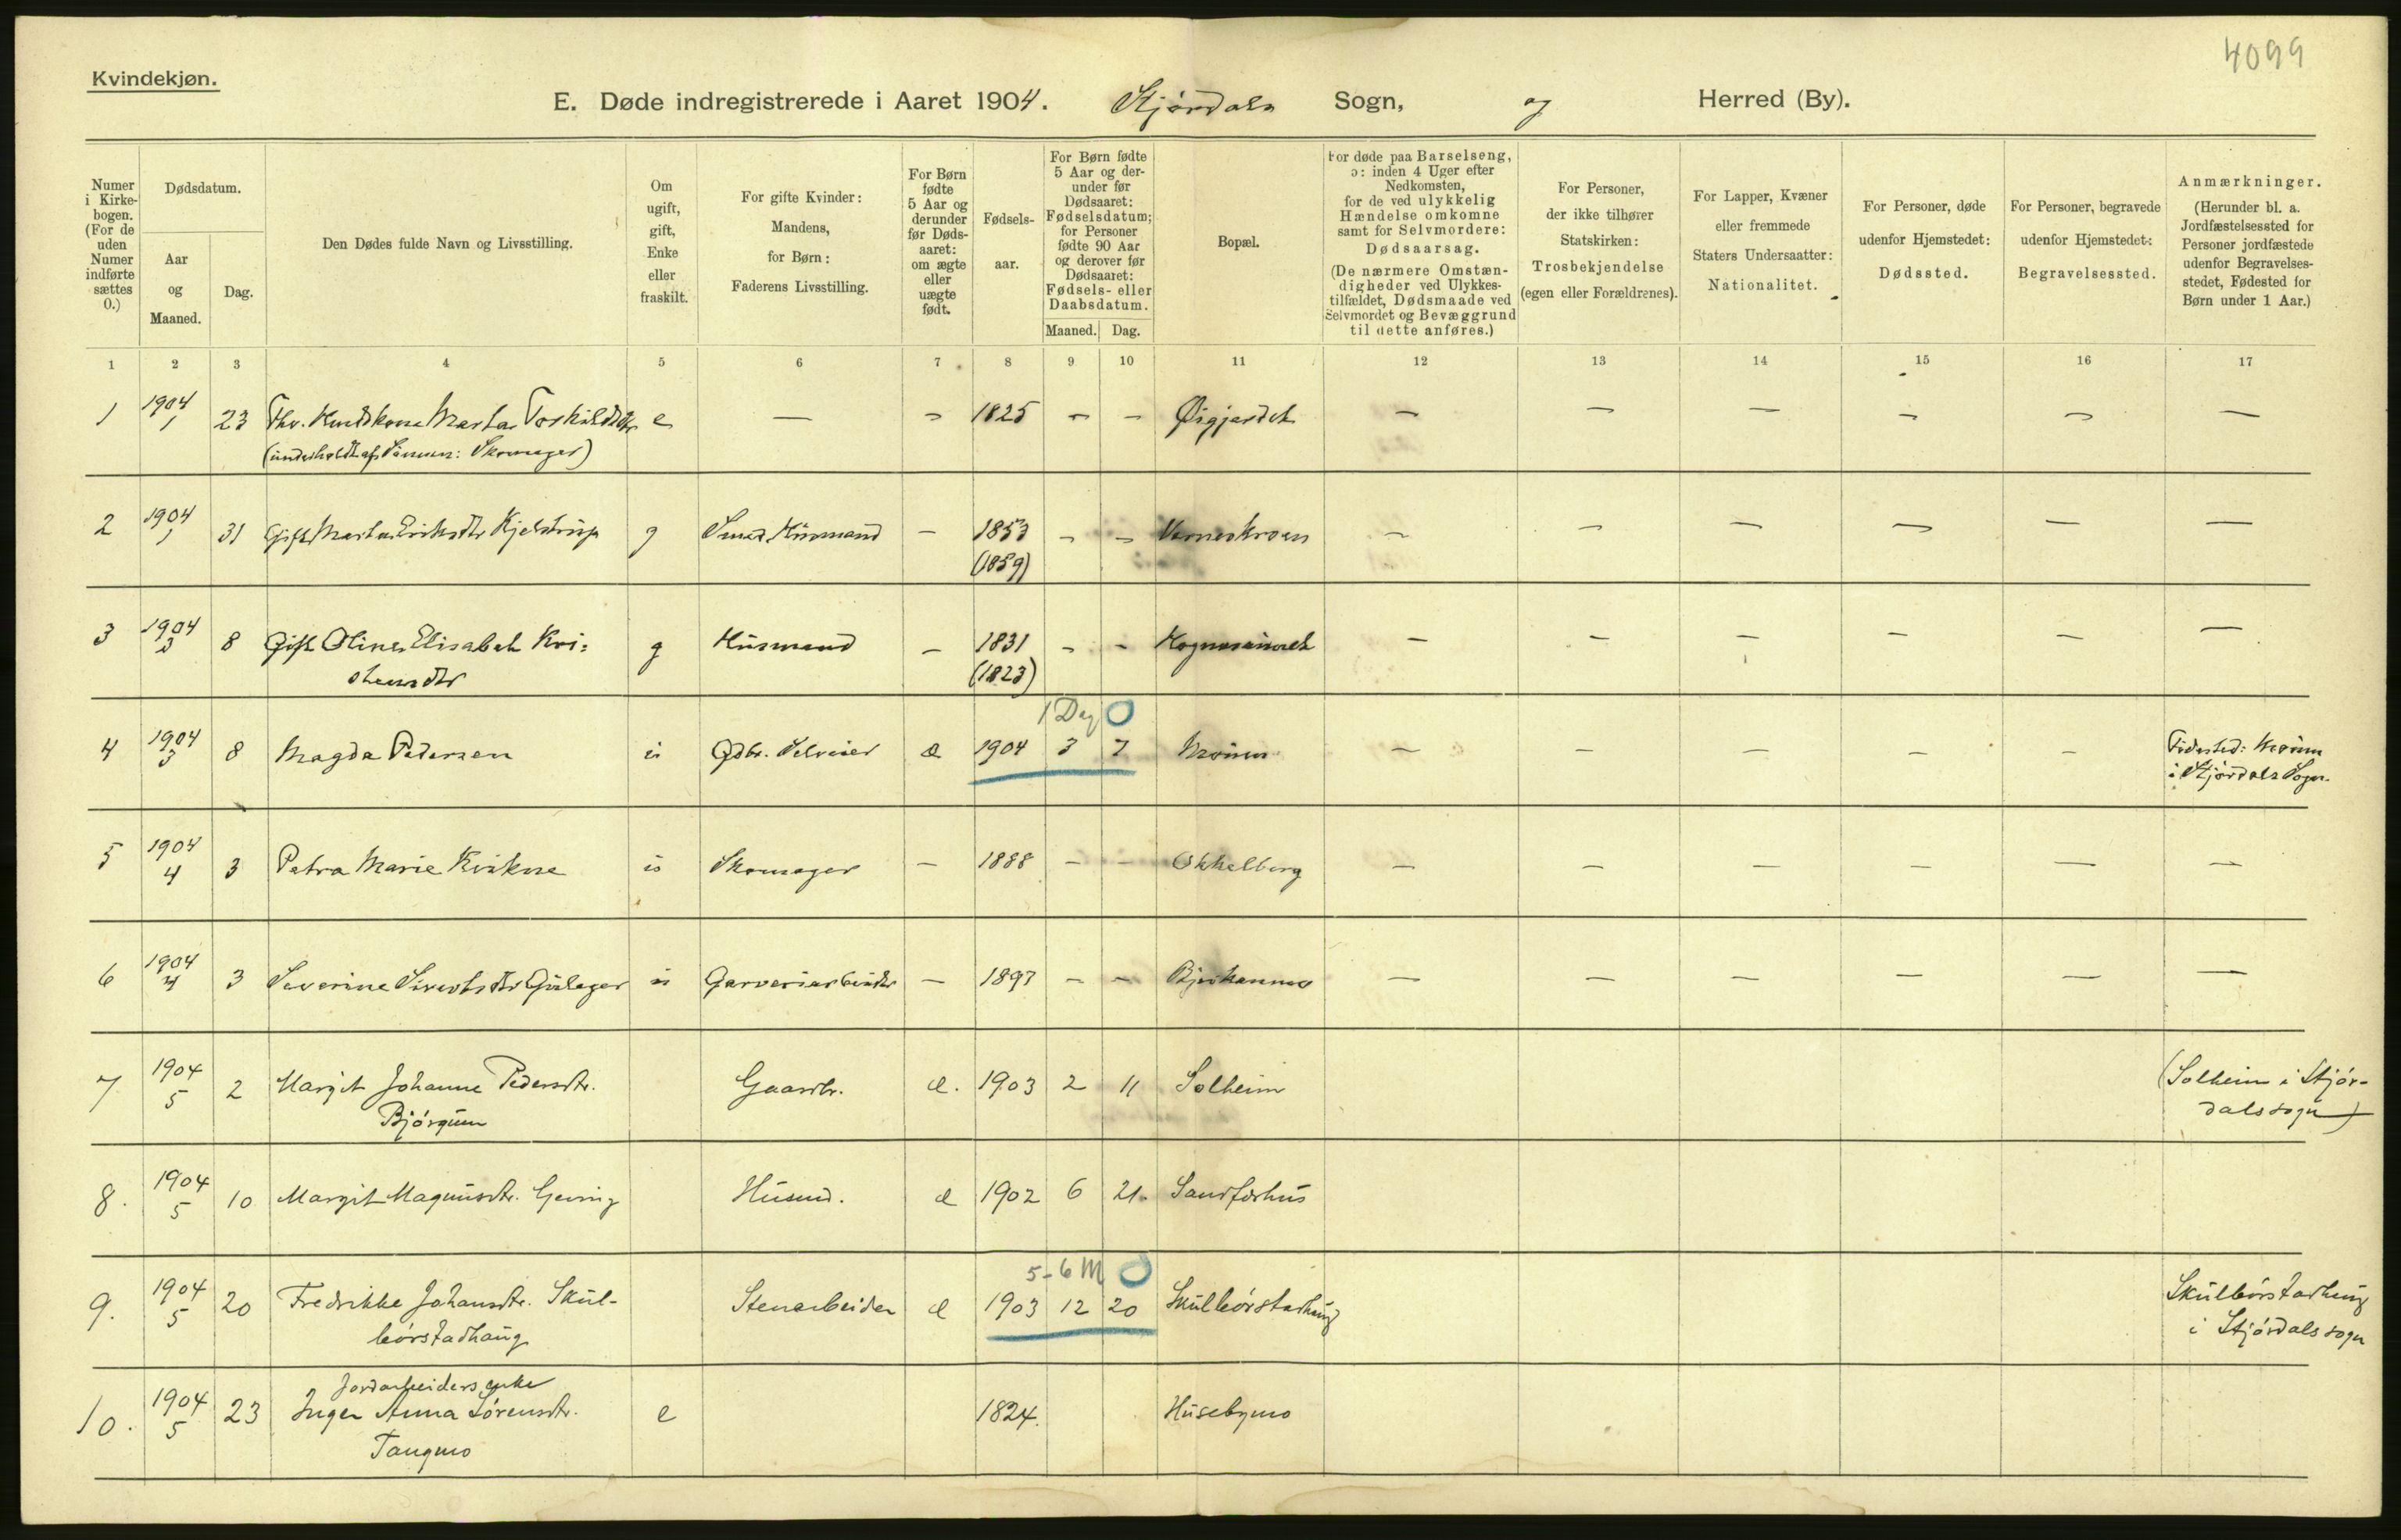 4099
Kvindekjøn.
E. Døde indregistrerede i Aaret 1904. Stjørdals Sogn, og Herred (By).
Numer i Kirkebogen. (For de uden Numer indførte sættes 0.)
Dødsdatum.
Aar og Maaned.
Dag.
Den Dødes fulde Navn og Livsstilling.
Om ugift, gift, Enke eller fraskilt.
For gifte Kvinder: Mandens, for Børn: Faderens Livsstilling.
For Børn fødte 5 Aar og derunder før Dødsaaret: om ægte eller uægte født.
Fødselsaar.
For Børn fødte 5 Aar og derunder før Dødsaaret: Fødselsdatum; for Personer fødte 90 Aar og derover før Dødsaaret: Fødsels- eller Daabsdatum.
Maaned. Dag.
Bopæl.
For døde paa Barselseng, ɔ: inden 4 Uger efter Nedkomsten, for de ved ulykkelig Hændelse omkomne samt for Selvmordere: Dødsaarsag. (De nærmere Omstændigheder ved Ulykkestilfældet, Dødsmaade ved Selvmordet og Bevæggrund til dette anføres.)
For Personer, der ikke tilhører Statskirken: Trosbekjendelse (egen eller Forældrenes).
For Lapper, Kvæner eller fremmede Staters Undersaatter: Nationalitet.
For Personer, døde udenfor Hjemstedet: Dødssted.
For Personer, begravede udenfor Hjemstedet: Begravelsessted.
Anmærkninger. (Herunder bl. a. Jordfæstelsessted for Personer jordfæstede udenfor Begravelsesstedet, Fødested for Børn under 1 Aar.)
1 2 3 4 5 6 7 8 9 10 11 12 13 14 15 16 17
1 1904 1 23 Marta Torkildsdtr e — - 1825 - - Øigjerdet — — — — — —
(underholdt af Sønnen: Skomager)
2 1904 1 31 Gift Marta Eriksdtr Kjelstrup g Smed, Husmand - 1853 - - Værneskroen — — — — — —
(1859)
3 1904 3 8 Gift Oline Elisabet Kri- g Husmand - 1831 - - — — — — — —
stensdtr (1823)
1 Dag 0
4 1904 3 8 Magda Pedersen u Gdbr. Selveier æ 1904 3 7 Moium — — — — — Fødested: Moium
i Stjørdals Sogn.
5 1904 4 3 Petra Marie Kvikne u Skomager - 1888 - - Okkelberg — — — — — —
6 1904 4 3 Severine Sivertsdtr Gulager u Garveriarbeider - 1897 - - — — — — — —
7 1904 5 2 Margit Johanne Pedersdtr. Gaardbr. æ. 1903 2 11 Solheim (Solheim i Stjør-
Bjørgum dals sogn)
8. 1904 5 10 Margit Magnusdtr. Geving Husmd. æ 1902 6 21. Sandforhus
5-6 M 0
9. 1904 5 20 Fredrikke Johansdtr. Skul- Stenarbeider æ 1903 12 20 Skulbørstadhaug Skulbørstadhaug
børstadhaug i Stjørdals sogn
Jordarbeiders enke
10. 1904 5 23 Inger Anna Sørensdtr. e 1824. Husebymo
Tangmo